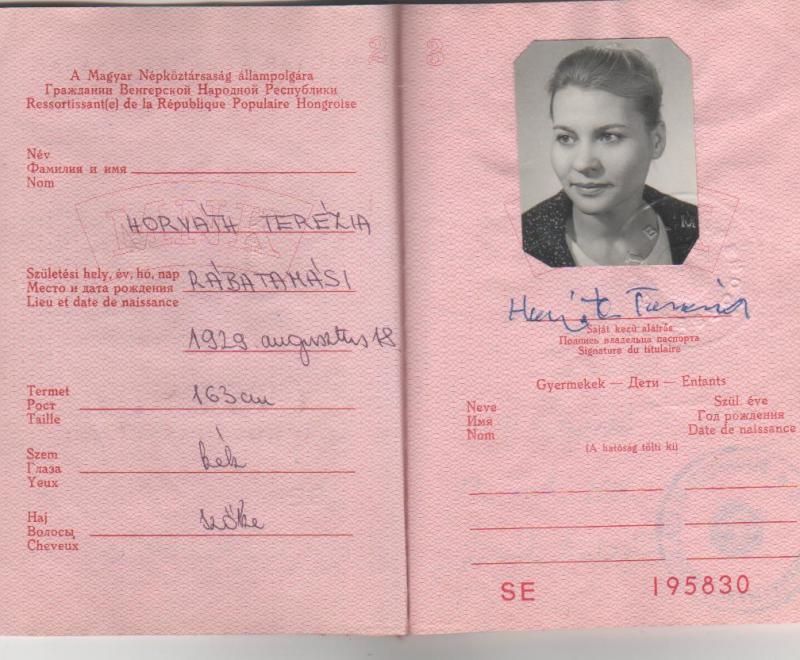 A Magyar Népköztársaság állampolgára
Гражданин Венгерской Народной Республики
Ressortissant(e) de la République Populaire Hongroise
Név
Фамилия и имя
Nom
HORVÁTH TERÉZIA
Születési hely, év, hó, nap
Место и дата рождения
Lieu et date de naissance
RÁBATAMÁSI
1929 augusztus 18
Termet
Рост
Taille
163 cm
Szem
Глаза
Yeux
kék
Haj
Волосы
Cheveux
szőke
2 3
Saját kezű aláírás
Подпись владельца паспорта
Signature du titulaire
Gyermekek — Дети — Enfants
Neve
Имя
Nom
Szül. éve
Год рождения
Date de naissance
(A hatóság tölti ki)
SE 195830